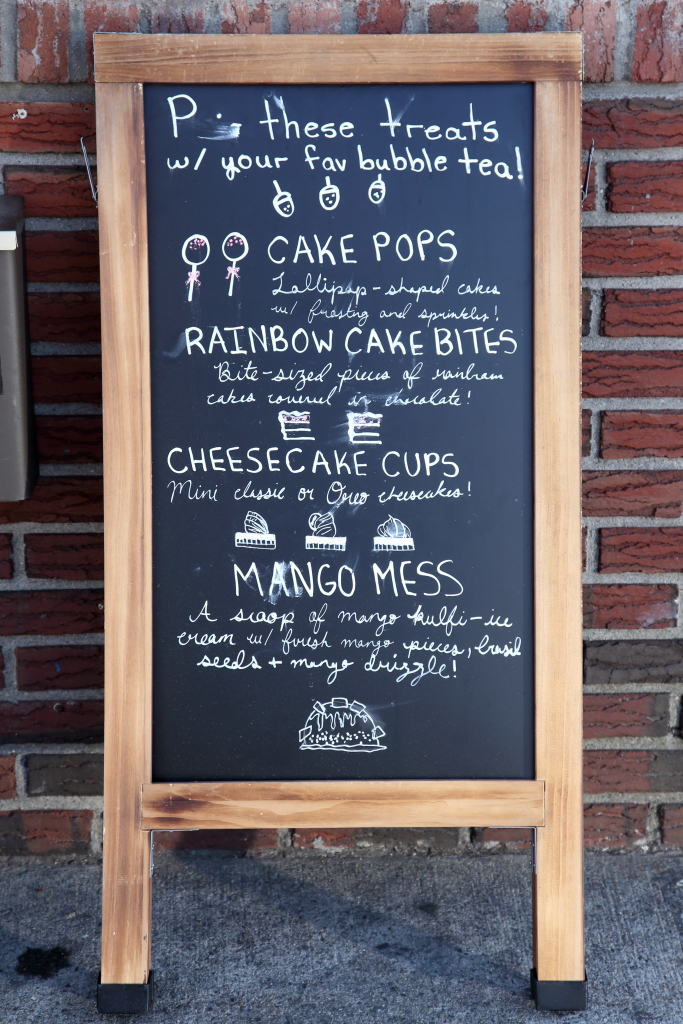 these treats
w/ your fav bubble tea!
CAKE POPS
Lollipop-shaped cakes
w/ frosting and sprinkles!
RAINBOW CAKE BITES
Bite-sized pieces of rainbow
cakes covered in chocolate!
CHEESECAKE CUPS
Mini classic or Oreo cheesecakes!
MANGO MESS
A scoop of mango kulfi-ice
cream w/ fresh mango pieces, basil
seeds + mango drizzle!